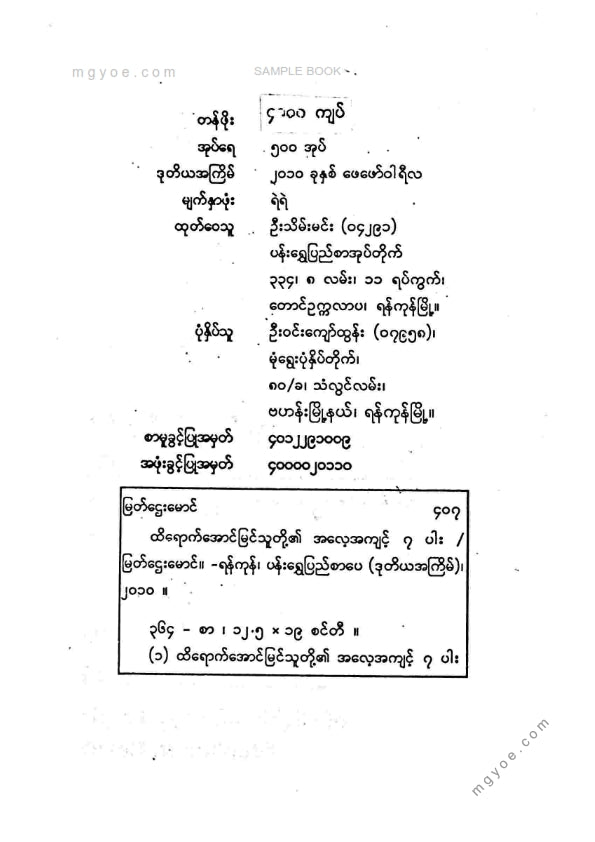 mgyoe.com SAMPLE BOOK
တန်ဖိုး ကျပ်
အုပ်ရေ ၅၀၀ အုပ်
ဒုတိယအကြိမ် ၂၀၁၀ ခုနှစ် ဖေဖော်ဝါရီလ
မျက်နှာဖုံး ရဲရဲ
ထုတ်ဝေသူ ဦးသိမ်းမင်း (၀၄၂၉၁)
ပန်းရွှေပြည်စာအုပ်တိုက်
၃၃၄၊ ၈ လမ်း၊ ၁၁ ရပ်ကွက်၊
တောင်ဥက္ကလာပ၊ ရန်ကုန်မြို့။
ပုံနှိပ်သူ ဦးဝင်းကျော်ထွန်း (၀၇၉၅၈)၊
မုံရွေးပုံနှိပ်တိုက်၊
၈၀/ခ၊ သံလွင်လမ်း၊
ဗဟန်းမြို့နယ်၊ ရန်ကုန်မြို့။
စာမူခွင့်ပြုအမှတ် ၄၀၁၂၂၉၁၀၀၉
အဖုံးခွင့်ပြုအမှတ် ၄၀၀၀၀၂၀၁၁၀
မြတ်ငွေးမောင် ၄၀၇
ထိရောက်အောင်မြင်သူတို့၏ အလေ့အကျင့် ၇ ပါး /
မြတ်ငွေးမောင်။ -ရန်ကုန်၊ ပန်းရွှေပြည်စာပေ (ဒုတိယအကြိမ်)၊
၂၀၁၀ ။
၃၆၄ - စာ ၊ ၁၂.၅ × ၁၉ စင်တီ ။
(၁) ထိရောက်အောင်မြင်သူတို့၏ အလေ့အကျင့် ၇ ပါး
mgyoe.com